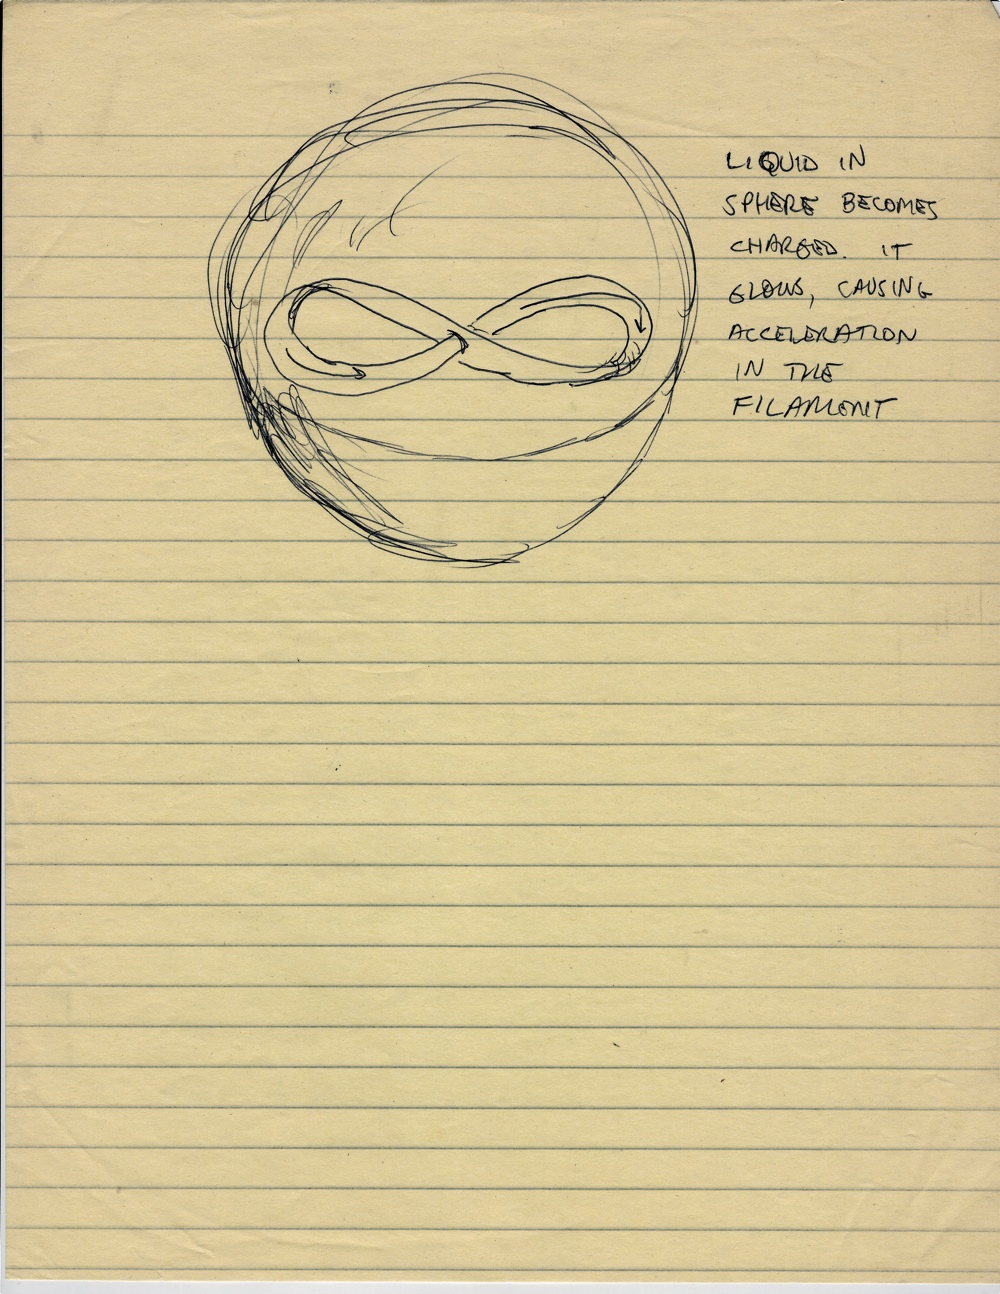 LIQUID IN
SPHERE BECOMES
CHARGED. IT
GLOWS, CAUSING
ACCELERATION
IN THE
FILAMENT